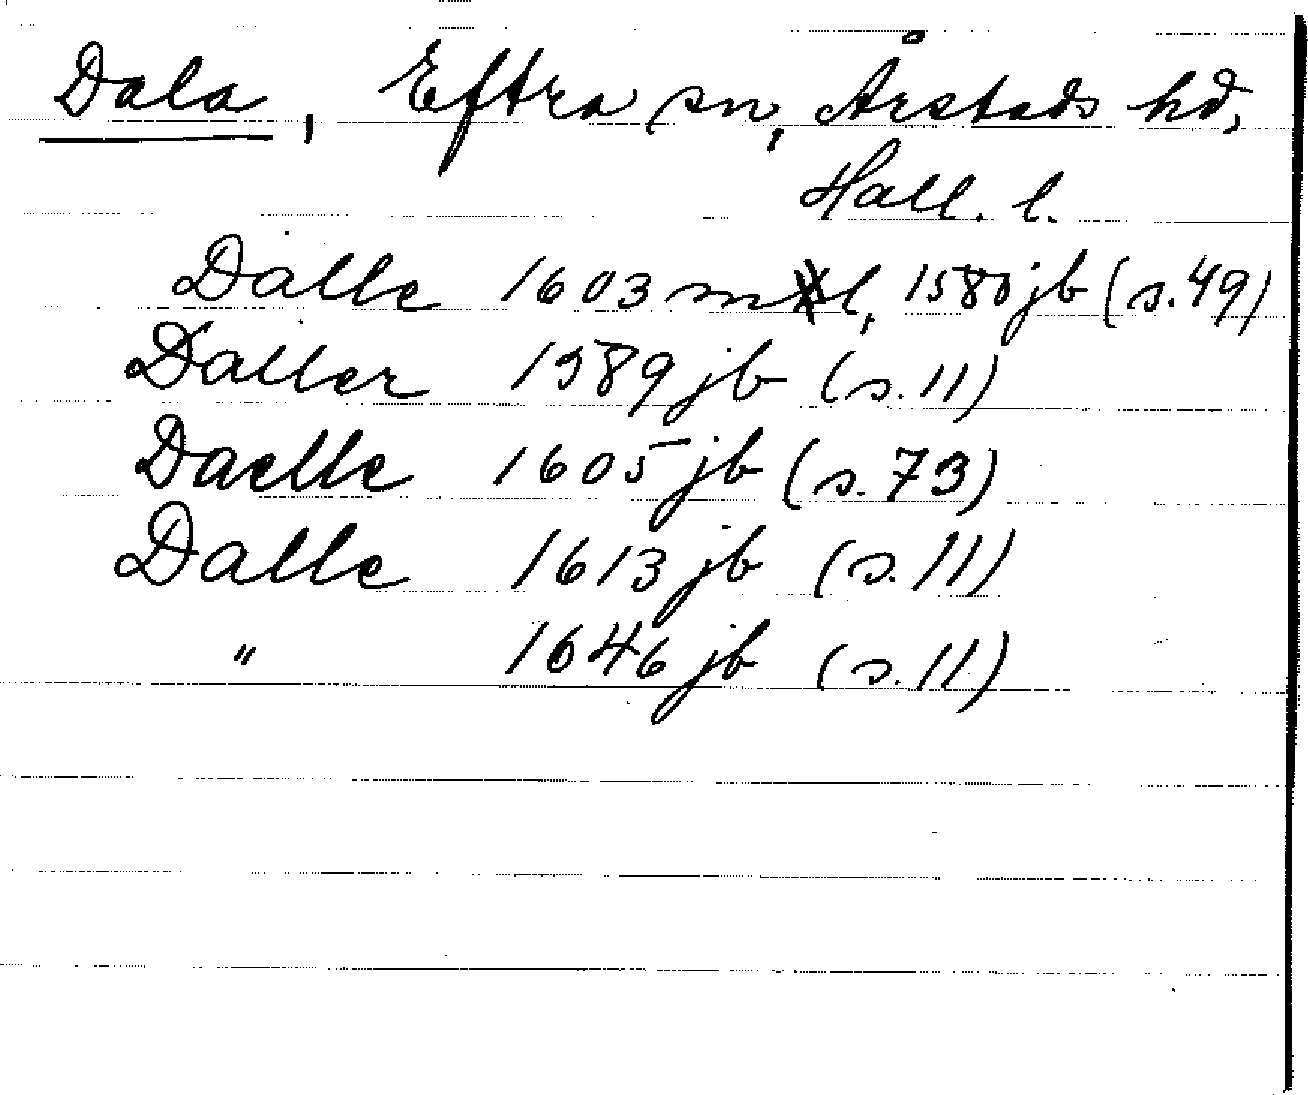 Dala, Eftra sn, Årstads hd,
Hall. l.
Dalle 1603 mtl, 1580 jb (s.49)
Daller 1589 jb (s.11)
Daelle 1605 jb (s.73)
Dalle 1613 jb (s.11)
" 1646 jb (s.11)